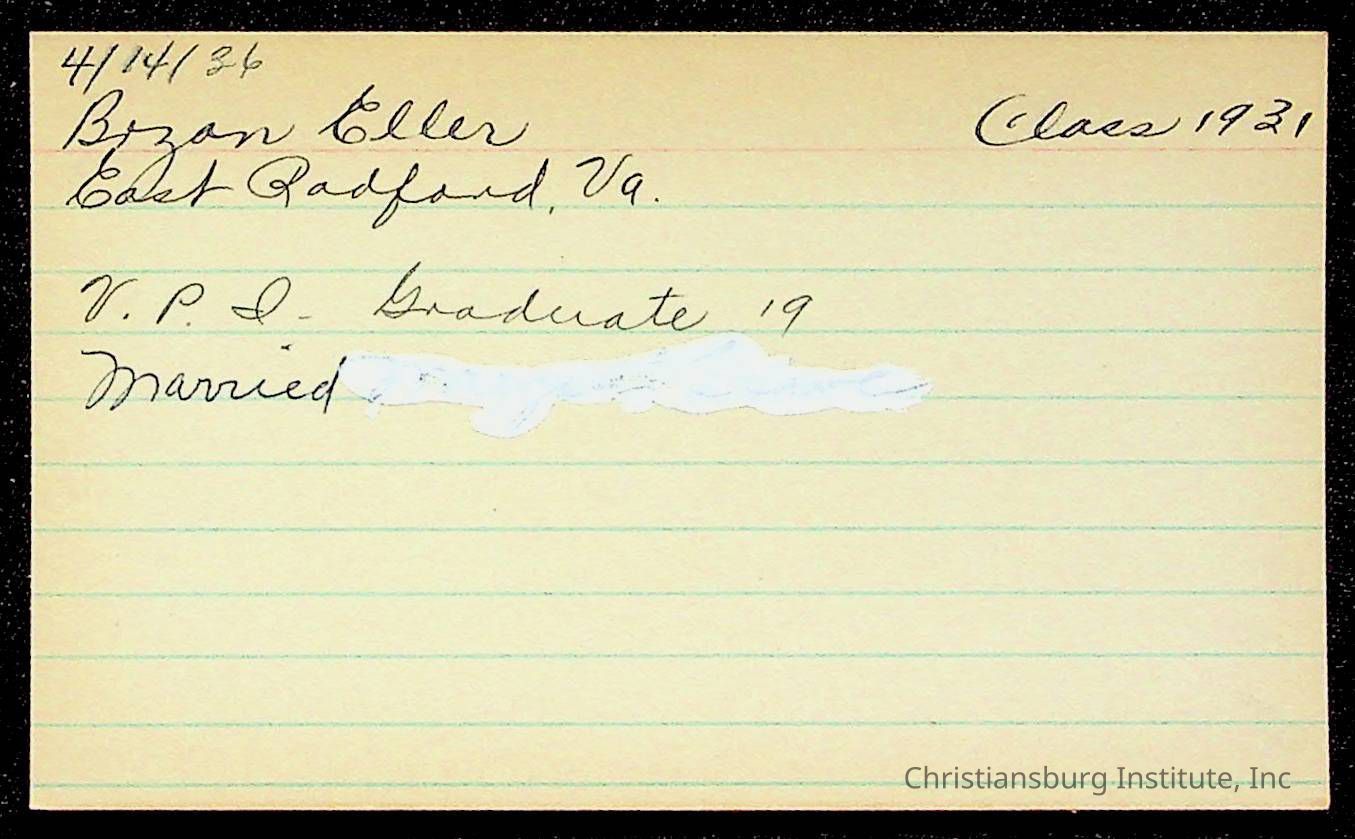 4/14/36
Bozan Eller Class 1931
East Radford, Va.
V. P. I - Graduate 19
Married
Christiansburg Institute, Inc